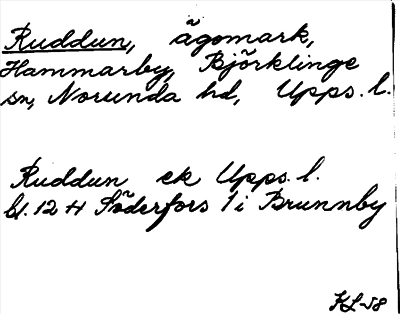 Ruddun, ägomark,
Hammarby, Björklinge
sn, Norunda hd, Upps. l.
Ruddun ek Upps. l.
bl. 12 H Söderfors 1 i Brunnby
KL-58